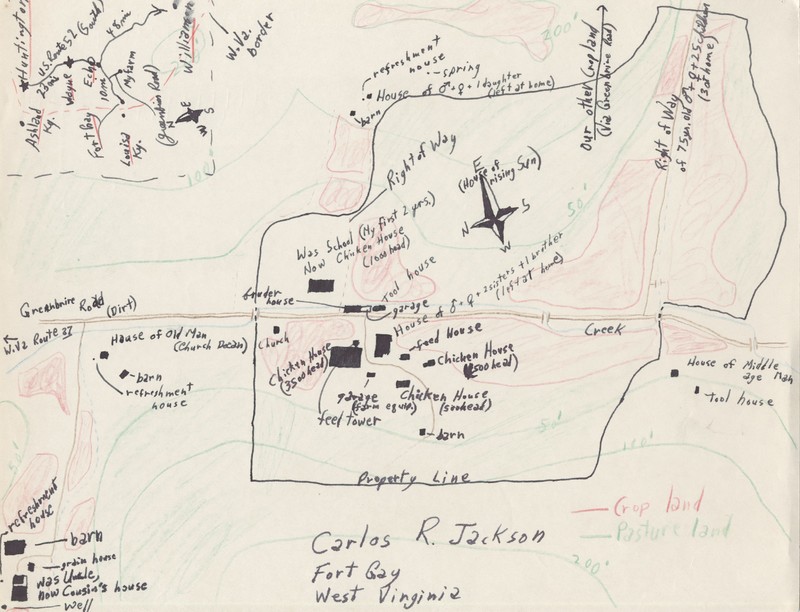 Huntington
U.S. Route 52 (South)
48 mi
Williamson
W. Va.
border
23 mi
Wayne
Echo
10 mi
My farm
Ashland
Ky.
Fort Gay
Louisa
Ky.
(Greenbrire Road)
N
E
S
W
100'
200'
refreshment
house
spring
House of ♂ + ♀ + 1 daughter
(left at home)
barn
Our other Cropland
(Via Greenbrire Road)
Right of Way
of 75 yr. old ♂ + ♀ + 25 children
(3 at home)
Right of Way
E
(House of
rising Sun)
N
S
W
50'
Was School (My first 2 yrs.)
Now Chicken House
(1000 head)
Tool house
Bruder
house
garage
House of ♂ + ♀ + 2 sisters + 1 brother
(left at home)
Greenbrire Road (Dirt)
W. Va Route 37
House of Old Man
(Church Decan)
Church
Chicken House
(3500 head)
feed House
Chicken House
(2500 head)
Creek
barn
refreshment
house
garage
(farm equip.)
Chicken House
(500 head)
feed tower
barn
House of Middle
age Man
Tool house
50'
100'
50'
Property Line
refreshment
house
barn
grain house
was Uncle,
now Cousin's house
Well
Crop land
Pasture land
200'
Carlos R. Jackson
Fort Gay
West Virginia